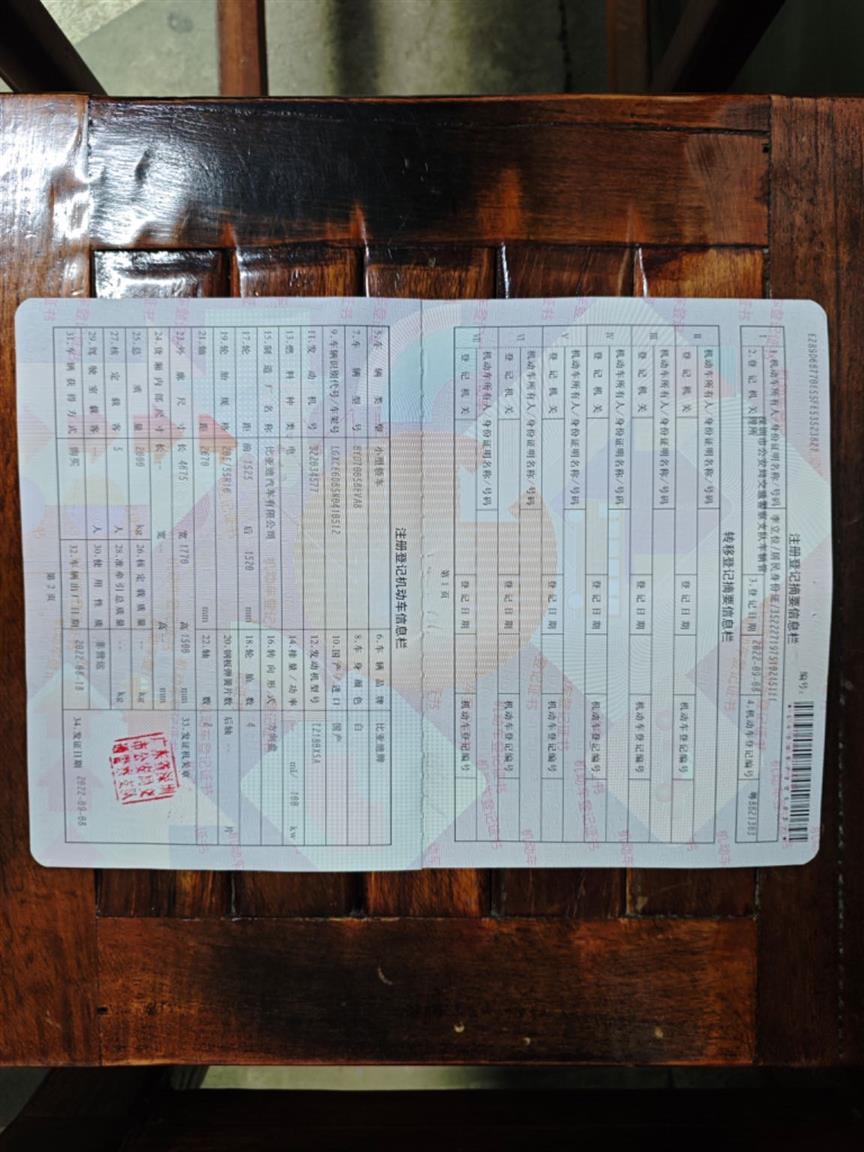 注册登记摘要信息栏
编号:
1.机动车所有人/身份证明名称/号码
居民身份证
2.登记机关
深圳市公安局交通警察支队车辆管理所
3.登记日期 2022-09-08
4.机动车登记编号
转移登记摘要信息栏
II 机动车所有人/身份证明名称/号码
登记机关 登记日期 机动车登记编号
III 机动车所有人/身份证明名称/号码
登记机关 登记日期 机动车登记编号
IV 机动车所有人/身份证明名称/号码
登记机关 登记日期 机动车登记编号
V 机动车所有人/身份证明名称/号码
登记机关 登记日期 机动车登记编号
VI 机动车所有人/身份证明名称/号码
登记机关 登记日期 机动车登记编号
VII 机动车所有人/身份证明名称/号码
登记机关 登记日期 机动车登记编号
第1页
注册登记机动车信息栏
5.车辆类型 小型轿车 6.车辆品牌 比亚迪牌
7.车辆型号 8.车身颜色 白
9.车辆识别代号/车架号 10.国产/进口 国产
11.发动机号 12.发动机型号
13.燃料种类 电 14.排量/功率 ml/ 100 kw
15.制造厂名称 比亚迪汽车有限公司 16.转向形式 方向盘
17.轮距 前 1525 后 1520 mm 18.轮胎数 4
19.轮胎规格 20.钢板弹簧片数 后轴 -- 片
21.轴距 2670 mm 22.轴数 2
23.外廓尺寸 长 4675 宽 1770 高 1500 mm
33.发证机关章
24.货厢内部尺寸 长 -- 宽 -- 高 -- mm
25.总质量 kg 26.核定载质量 -- kg
27.核定载客 5 人 28.准牵引总质量 -- kg
29.驾驶室载客 -- 人 30.使用性质 非营运
31.车辆获得方式 购买 32.车辆出厂日期
34.发证日期 2022-09-08
广东省深圳
市公安局交
通警察支队
第2页